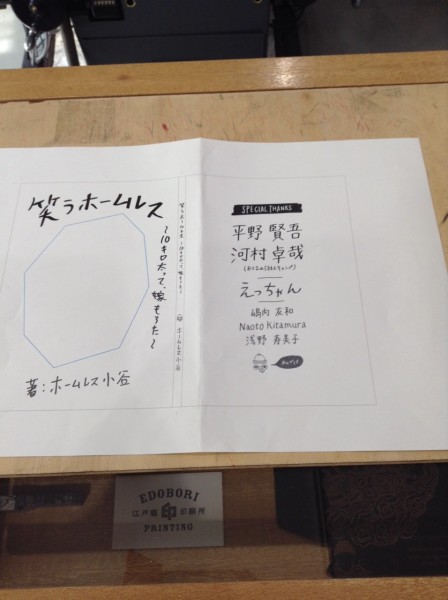 笑うホームレス
〜10キロ太って、嫁もろた〜
著：ホームレス小谷
笑うホームレス 〜10キロ太って、嫁もろた〜
ホームレス小谷
SPECIAL THANKS
平野 賢吾
河村 卓哉
えっちゃん
嶋内 友和
Naoto Kitamura
浅野 寿美子
EDOBORI
江戸堀 印 印刷所
PRINTING